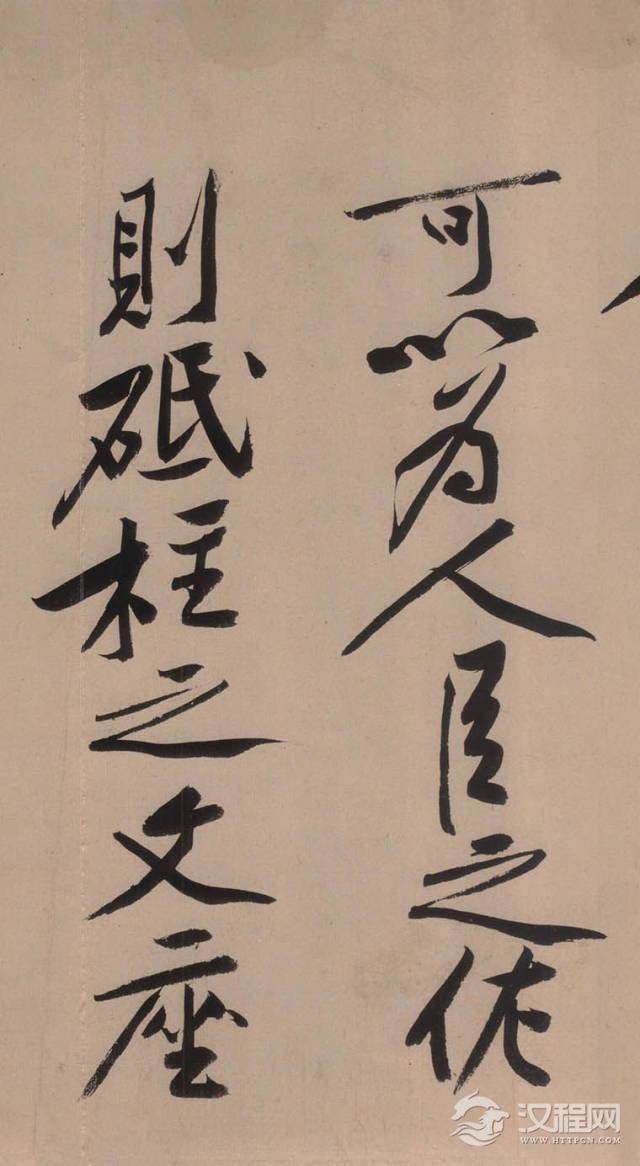 可以為人臣之佐
則砥柱之文座
汉程网
WWW.HTTPCN.COM